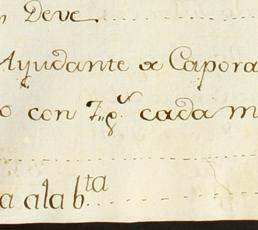 Deve
Ayudante œ Capora
o con Zg.s cada m
a ala b.ta